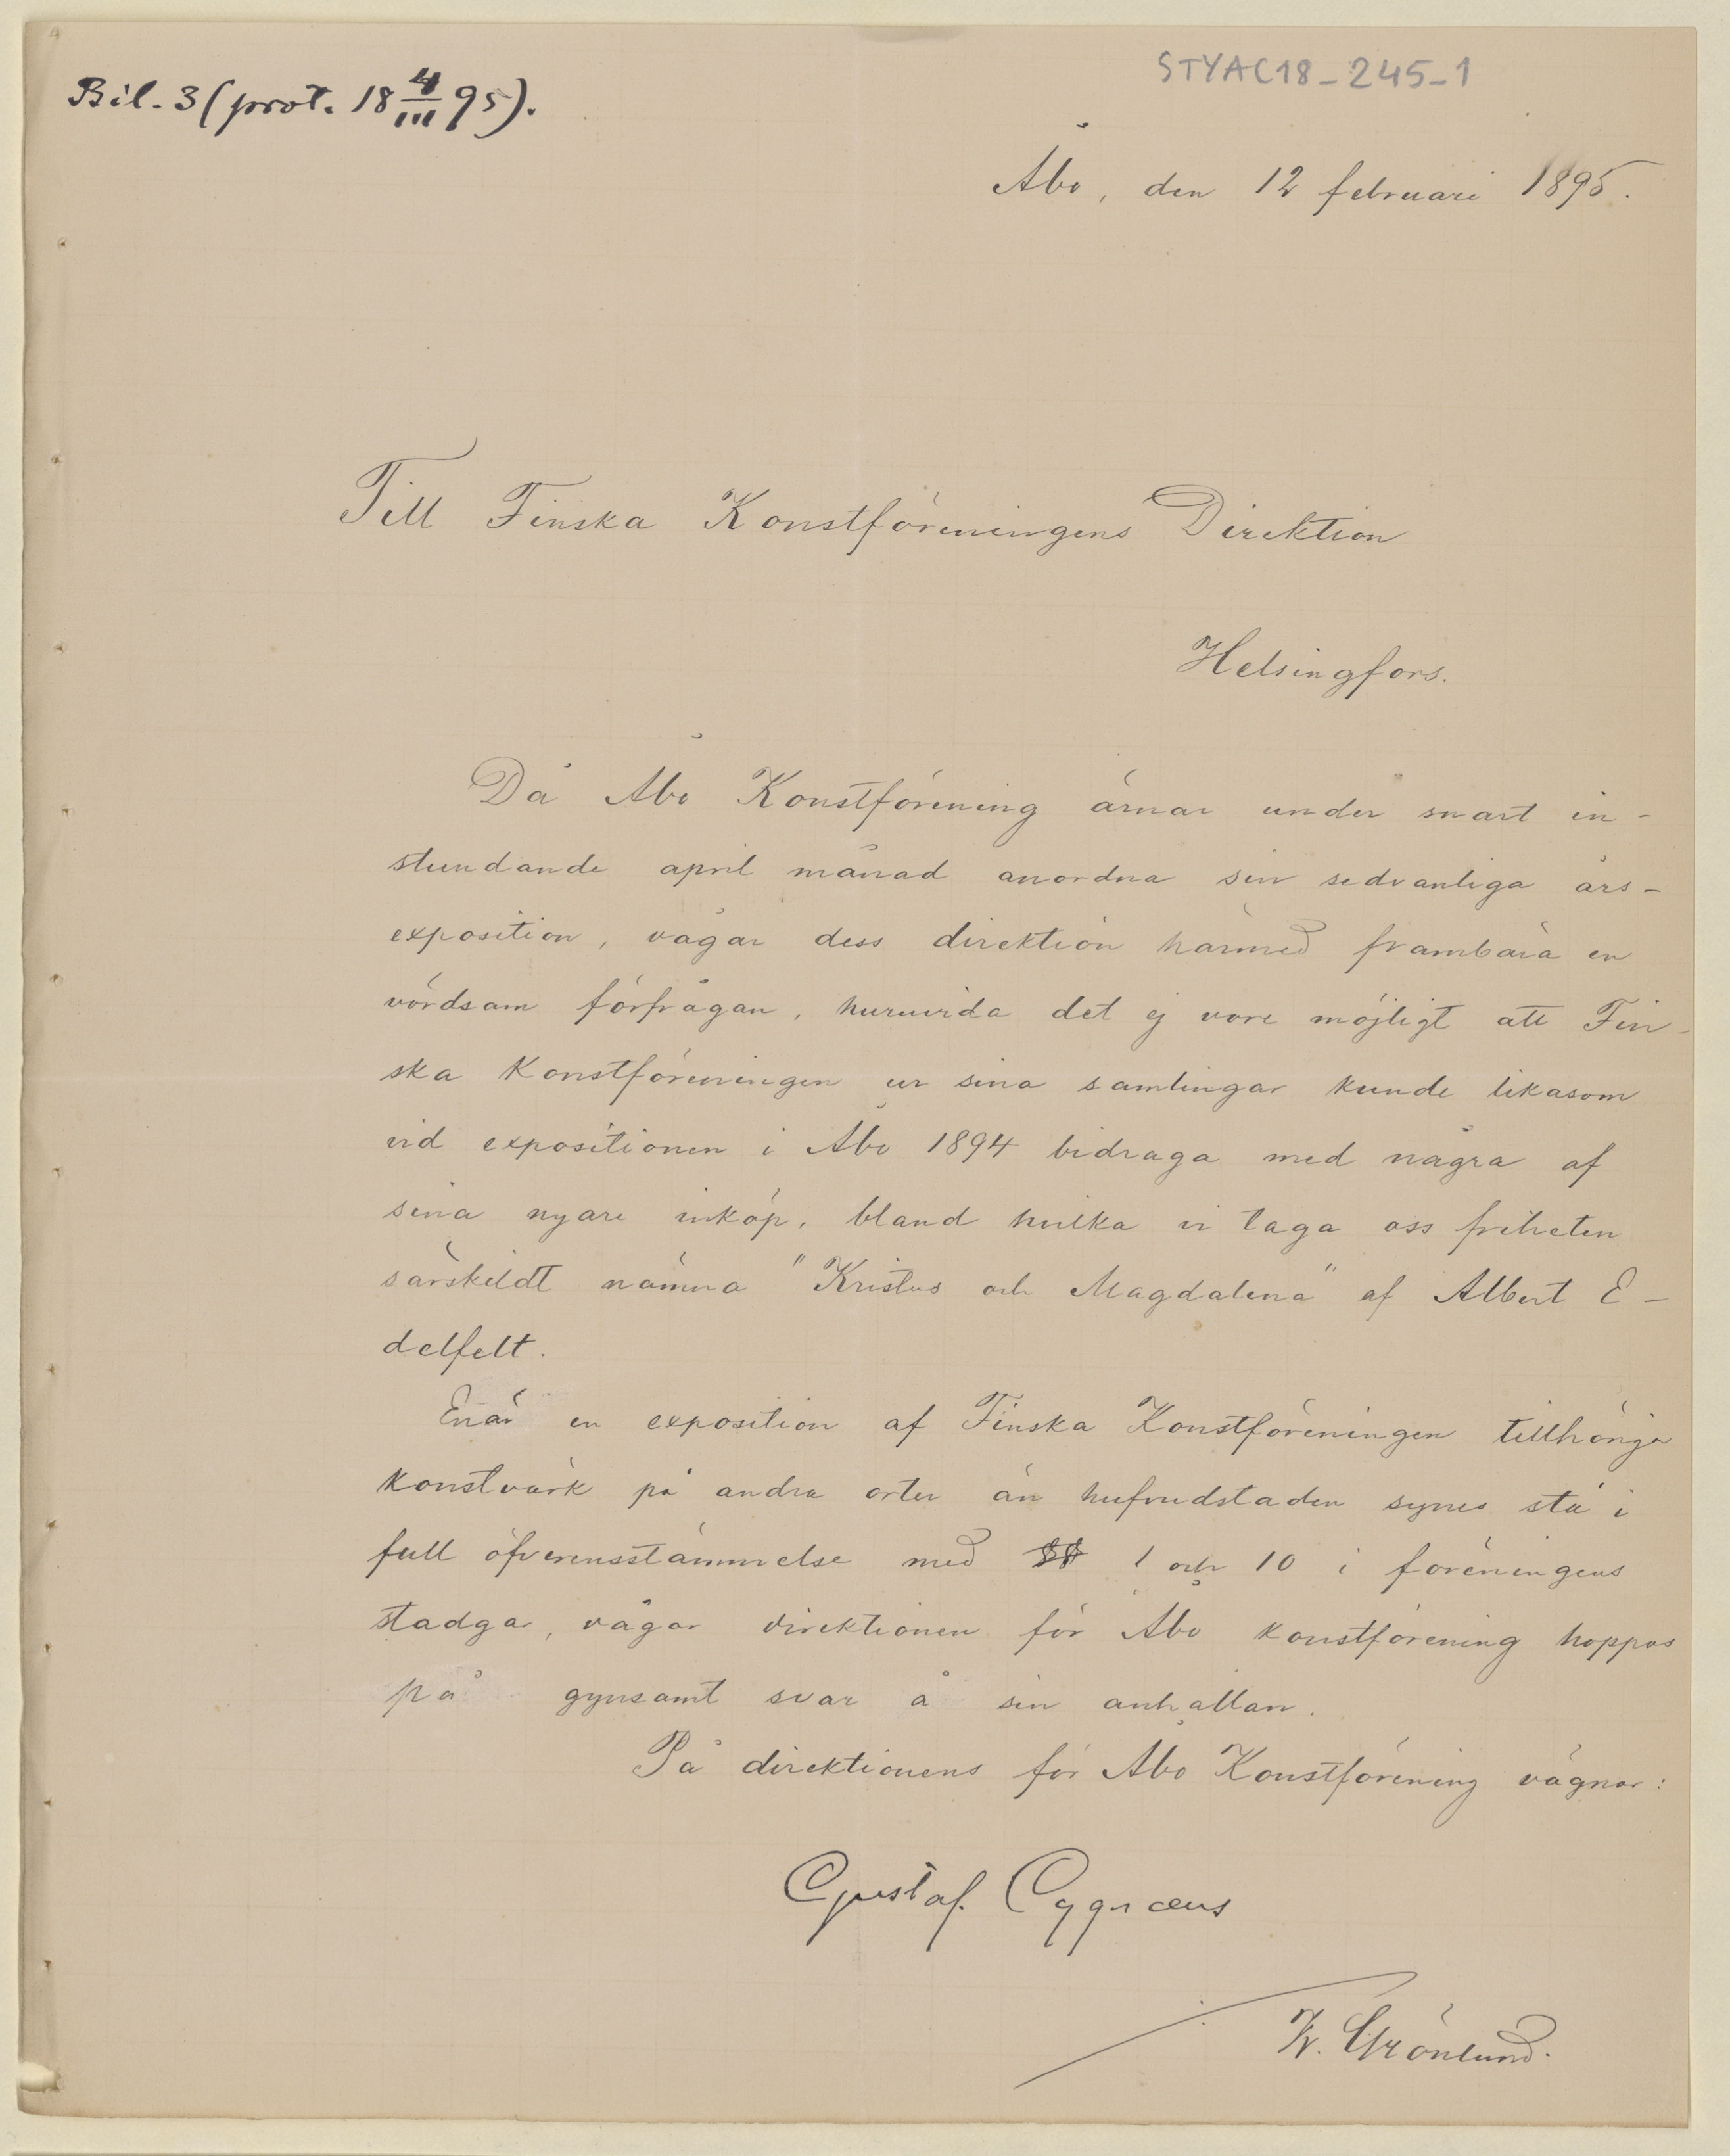 STYAC18_245_1
Bil. 3 (prot. 18 4/III 95).
Åbo, den 12 februari 1895.
Till Finska Konstföreningens Direktion
Helsingfors.
Då Åbo Konstförening ärnar under snart in-
stundande april månad anordna sin sedvanliga års-
exposition, vågar dess direktion härmed frambära en
vördsam förfrågan, huruvida det ej vore möjligt att Fin-
ska Konstföreningen ur sina samlingar kunde likasom
vid expositionen i Åbo 1894 bidraga med några af
sina nyare inköp, bland hvilka vi taga oss friheten
särskildt nämna "Kristus och Magdalena" af Albert E-
delfelt.
Enär en exposition af Finska Konstföreningen tillhöriga
konstvärk på andra orter än hufvudstaden synes stå i
full öfverensstämmelse med §§ 1 och 10 i föreningens
stadgar, vågar direktionen för Åbo konstförening hoppas
på gynsamt svar å sin anhållan.
På direktionens för Åbo Konstförening vägnar:
Gustaf Cygnæus
Grönlund.